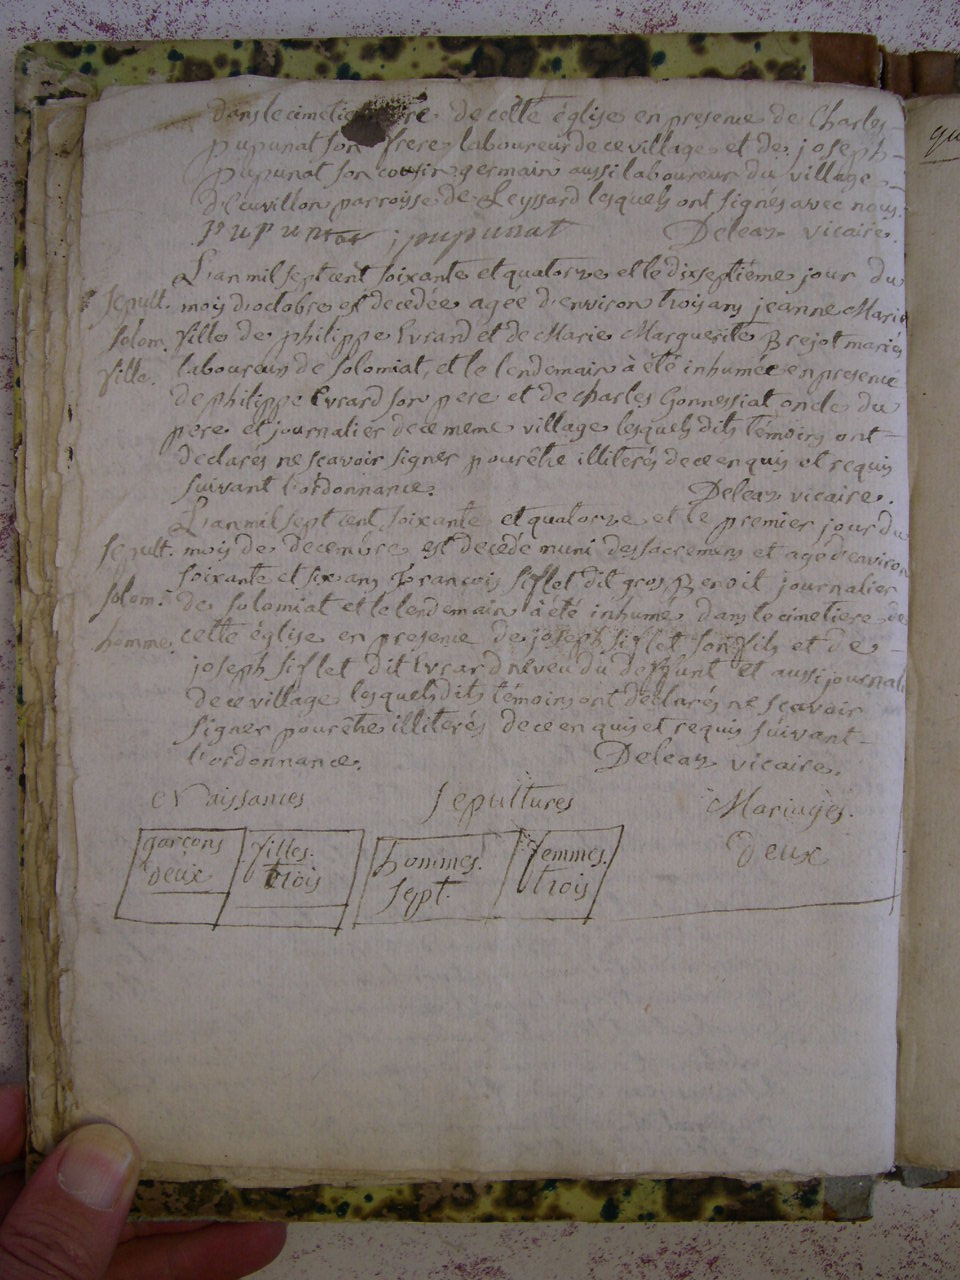 dans le cimetiere de cette église en presence de Charles
pupunat son frere laboureur de ce village et de joseph
pupunat son cousin germain aussi laboureur du village
d'euvillon parroisse de Leyssard lesquels ont signés avec nous.
pupunat jpupunat Deleaz vicaire.
L'an mil sept cent soixante et quatorze et le dixseptiéme jour du
sepult. moy d'octobre est decedée agée d'environ troy any jeanne Marie
solom. fille de philippe Evrard et de Marie Marguerite Brejot mariés
fille. laboureurs de solomiat, et le lendemain à été inhumée en presence
de philippe Evrard son pere et de charles Gonnessiat oncle du
pere et journalier de ce meme village lesquels dits témoins ont
declarés ne scavoir signer pour être illiterés de ce enquis et requis
suivant l'ordonnance. Deleaz vicaire.
L'an mil sept cent soixante et quatorze et le premier jour du
sepult. moy de decembre est decedé muni des sacremens et agé d'environ
soixante et six any François Siflet dit gros Benoit journalier
solom. de solomiat et le lendemain à été inhumé dans le cimetiere de
homme. cette église en presence de joseph siflet son fils et de
joseph siflet dit Evrard neveu du deffunt et aussi journali
de ce village lesquels dits témoins ont declarés ne scavoir
signer pour être illiterés de ce enquis et requis suivant
l'ordonnance. Deleaz vicaire.
Naissances sepultures Mariages.
garçons filles. hommes. femmes. deux
deux trois sept. trois
qu